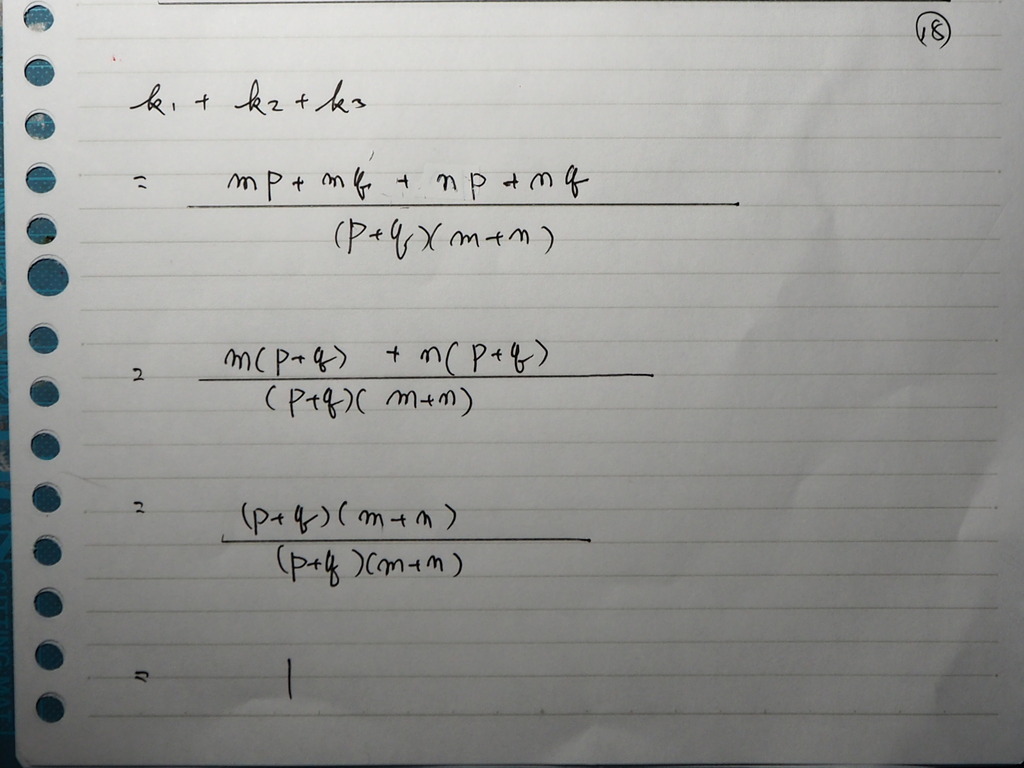 (18)
k₁ + k₂ + k₃
= mp + mq + np + nq
(p+q)(m+n)
= m(p+q) + n(p+q)
(p+q)(m+n)
= (p+q)(m+n)
(p+q)(m+n)
= 1